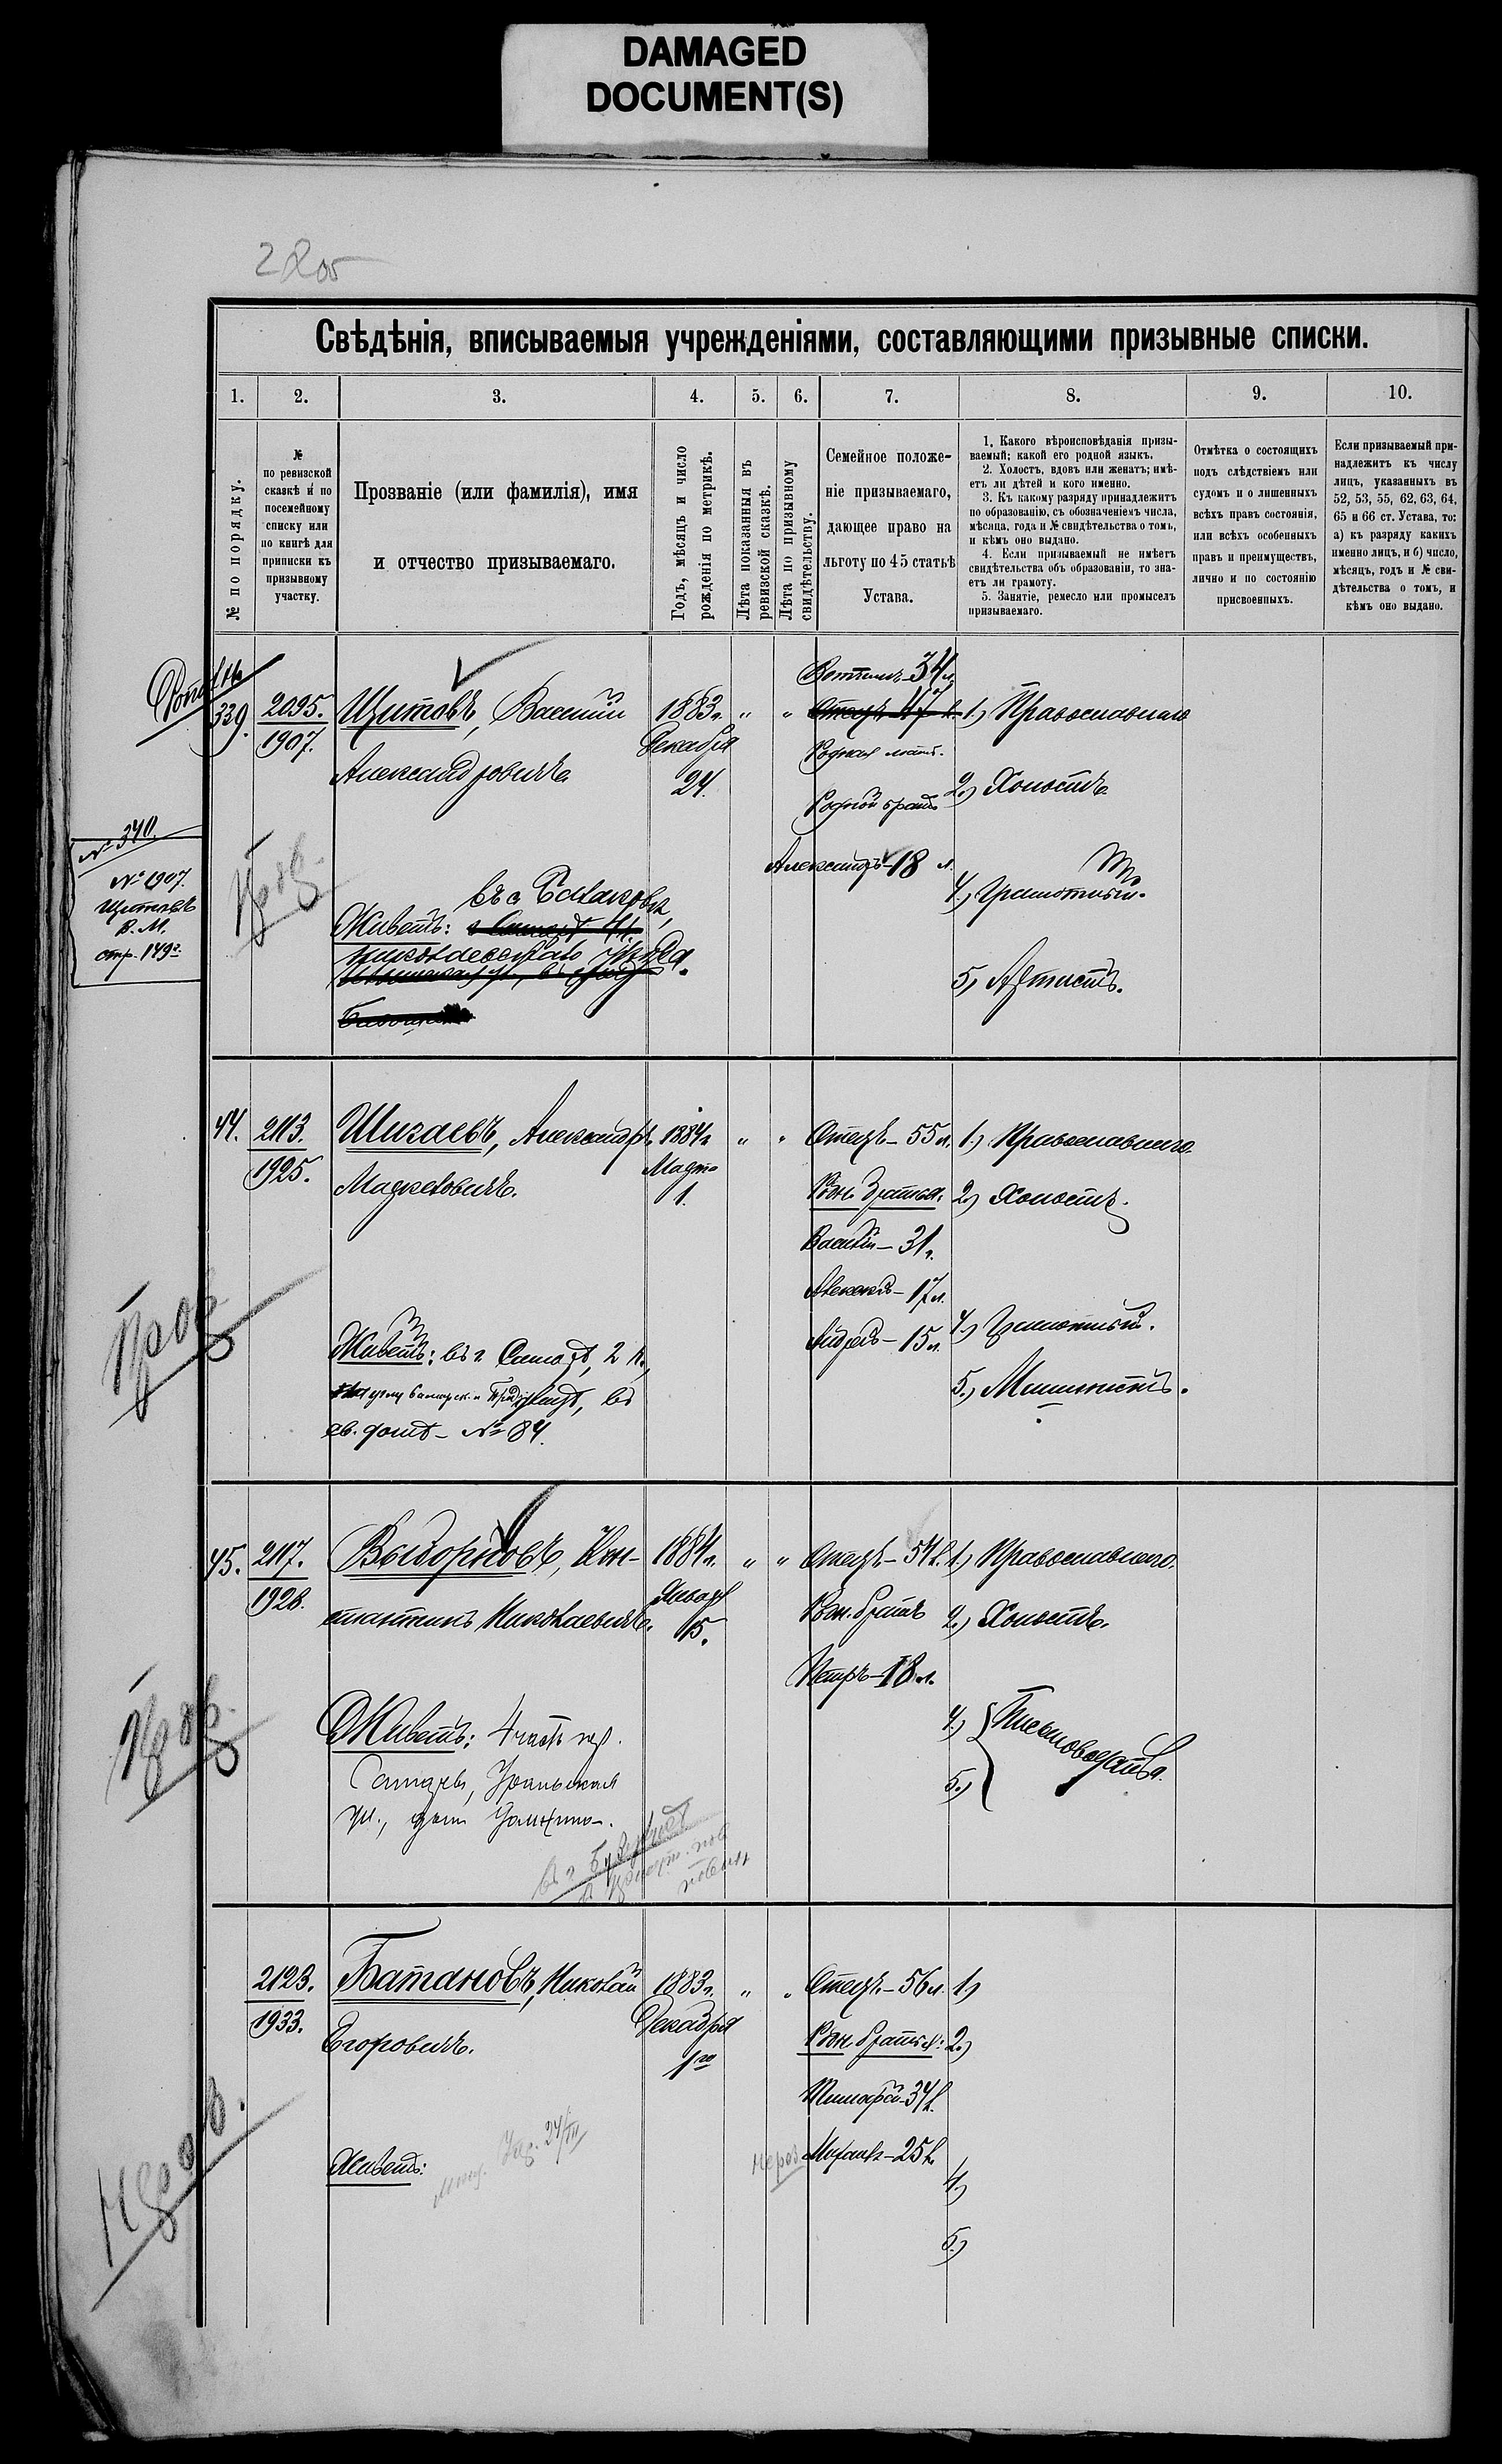 DAMAGED
DOCUMENT(S)
2805
Свѣдѣнія, вписываемыя учрежденіями, составляющими призывные списки.
1. 2. 3. 4. 5. 6. 7. 8. 9. 10.
№ по порядку.
№
по ревизской
сказкѣ и по
посемейному
списку или
по книгѣ для
приписки къ
призывному
участку.
Прозваніе (или фамилія), имя
и отчество призываемаго.
Годъ, мѣсяцъ и число
рожденія по метрикѣ.
Лѣта показанныя въ
ревизской сказкѣ.
Лѣта по призывному
свидѣтельству.
Семейное положе-
ніе призываемаго,
дающее право на
льготу по 45 статьѣ
Устава.
1. Какого вѣроисповѣданія призы-
ваемый; какой его родной языкъ.
2. Холостъ, вдовъ или женатъ; имѣ-
етъ ли дѣтей и кого именно.
3. Къ какому разряду принадлежитъ
по образованію, съ обозначеніемъ числа,
мѣсяца, года и № свидѣтельства о томъ,
и кѣмъ оно выдано.
4. Если призываемый не имѣетъ
свидѣтельства объ образованіи, то зна-
етъ ли грамоту.
5. Занятіе, ремесло или промыселъ
призываемаго.
Отмѣтка о состоящихъ
подъ слѣдствіемъ или
судомъ и о лишенныхъ
всѣхъ правъ состоянія,
или всѣхъ особенныхъ
правъ и преимуществъ,
лично и по состоянію
присвоенныхъ.
Если призываемый при-
надлежитъ къ числу
лицъ, указанныхъ въ
52, 53, 55, 62, 63, 64,
65 и 66 ст. Устава, то:
а) къ разряду какихъ
именно лицъ, и б) число,
мѣсяцъ, годъ и № сви-
дѣтельства о томъ, и
кѣмъ оно выдано.
339.
2095.
1907.
Щитовъ, Василій
Александровичъ.
1883 г.
Декабря
24.
" "
Вотчимъ - 34 л.
Отецъ 47 л.
Родная мать.
Родной братъ
Александръ - 18 л.
1) Православнаго
2) Холостъ.
4) Грамотный.
5) Артистъ.
№ 340.
№ 1907.
Щитовъ
В. М.
стр. 149
Живетъ:
Николаевскаго уѣзда.
44.
2113.
1925.
Шигаевъ, Александръ
Маркеловичъ.
1884 г.
Марта
1.
" "
Отецъ - 55 л.
Родн. братья.
Василій - 31 г.
Алексѣй - 17 л.
Андрей - 15 л.
1) Православнаго.
2) Холостъ.
4) Грамотный.
5) Машинистъ.
Живетъ: въ г. Самарѣ, 2 ч.,
въ
св. домѣ - № 84.
45.
2117.
1928.
Выборновъ, Кон-
стантинъ Николаевичъ.
1884 г.
Января
15.
" "
Отецъ - 54 л.
Родн. братъ
Петръ - 18 л.
1) Православнаго.
2) Холостъ.
4)
5)
Письмоводство.
Живетъ: 4 часть гор.
Самары, Уральская
ул., домъ
2123.
1933.
Батановъ, Николай
Егоровичъ.
1883 г.
Декабря
1го
" "
Отецъ - 56 л.
Родн. братья:
Тимофѣй - 34 л.
Михаилъ - 25 л.
1)
2)
4)
5)
Живетъ: